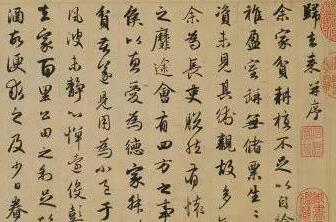 歸去来并序
余家貧耕植不足以自給
稚盈室缾無儲粟生
資未見其術親故多
余為長吏脱然有
之靡途會有四方之事
侯以惠愛為德家叔
貧苦遂見用為小邑于
風波未静心憚遠役彭
去家百里公田之利足以
酒故便求之及少日眷